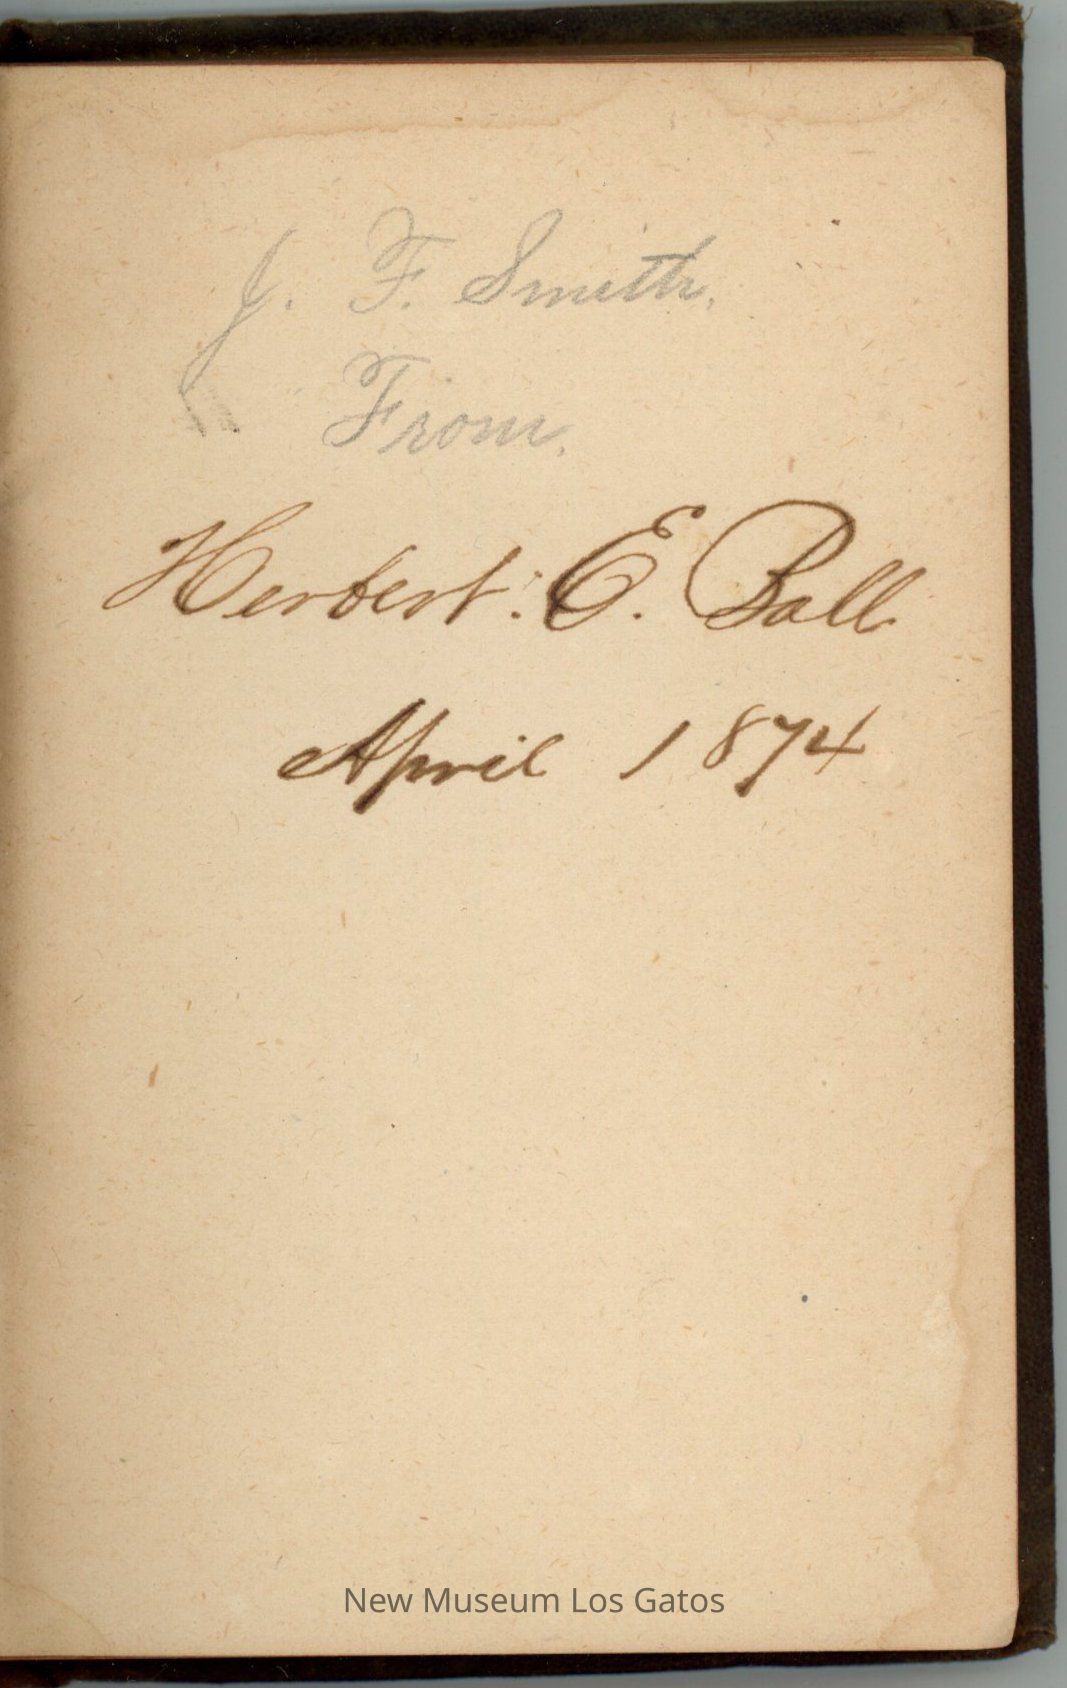 J. F. Smith.
From.
Herbert. E. Ball
April 1874
New Museum Los Gatos